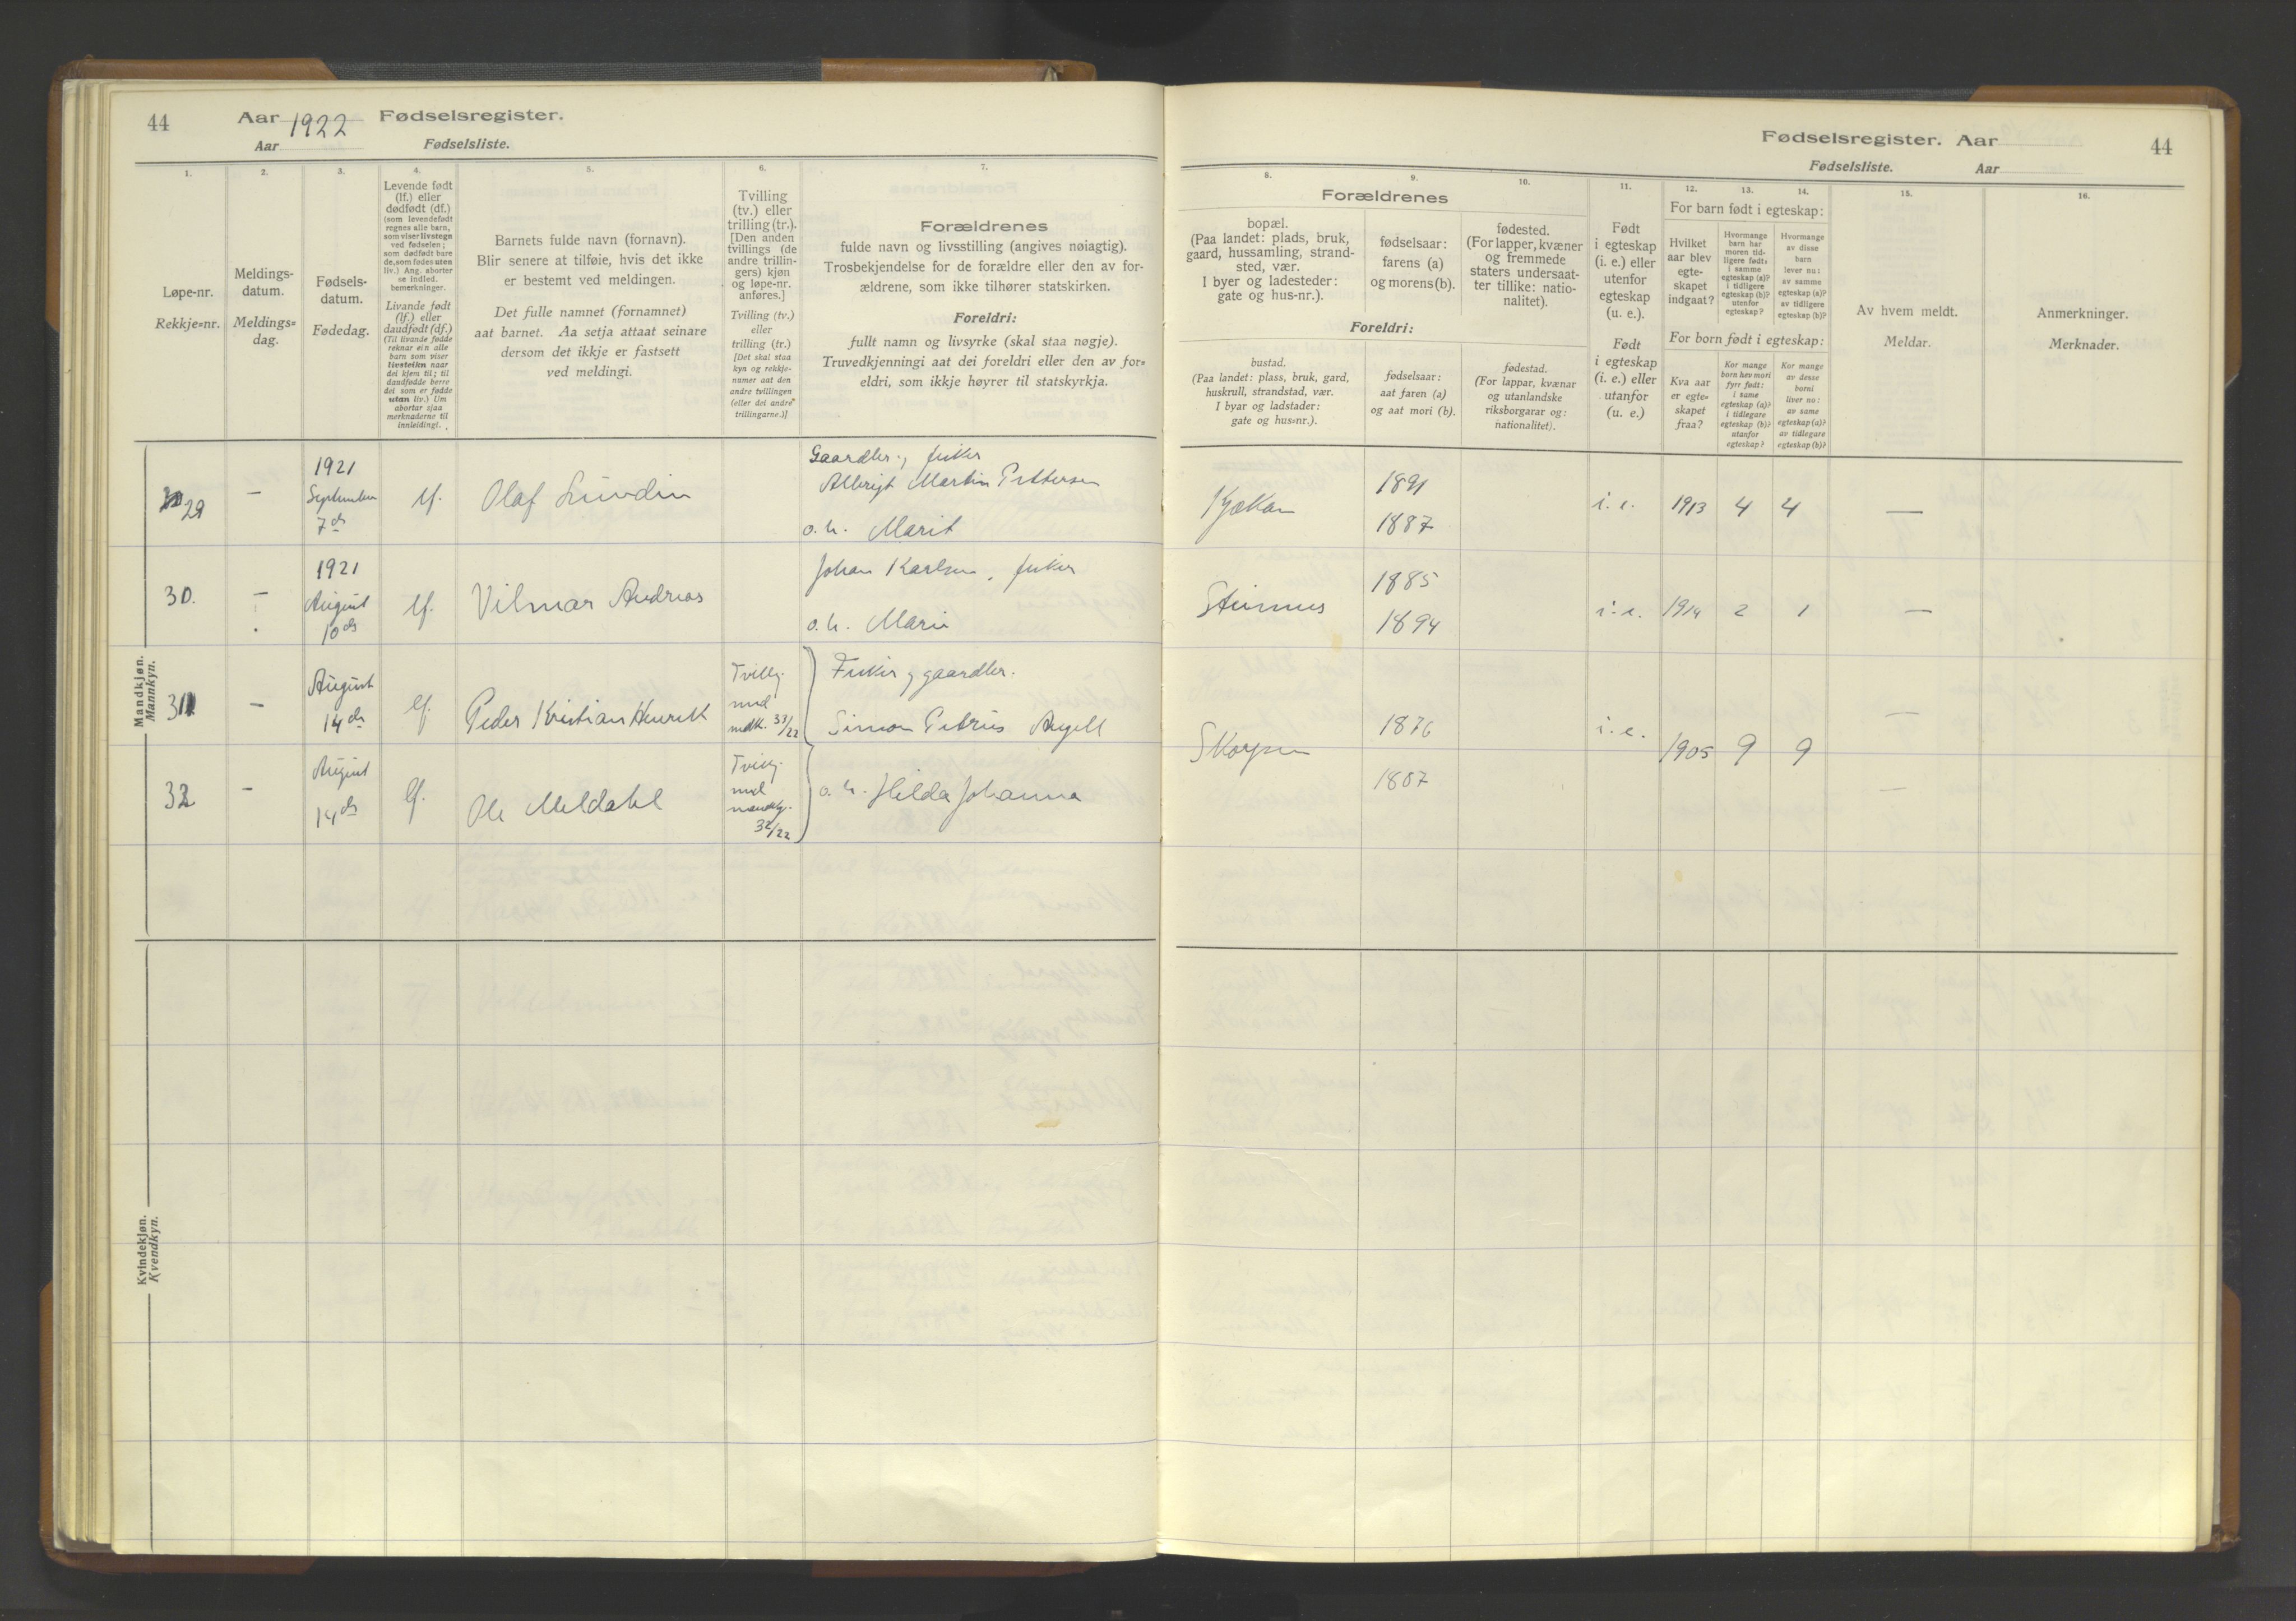 44
Aar 1922 Fødselsregister.
Aar Fødselsliste.
1.
2.
3.
4.
5.
6.
7.
Løpe-nr.
Rekkje=nr.
Meldings-
datum.
Meldings=
dag.
Fødsels-
datum.
Fødedag.
Levende født
(lf.) eller
dødfødt (df.)
(som levendefødt
regnes alle barn,
som viser livstegn
ved fødselen;
som dødfødt bare
de, som fødes uten
liv.) Ang. aborter
se indled.
bemerkninger.
Livande født
(lf.) eller
daudfødt (df.)
(Til livande fødde
reknar ein alle
barn som viser
livsteikn naar
dei kjem til; til
daudfødde berre
dei som er fødde
utan liv.) Um
abortar sjaa
merknaderne til
innleidingi.
Barnets fulde navn (fornavn).
Blir senere at tilføie, hvis det ikke
er bestemt ved meldingen.
Det fulle namnet (fornamnet)
aat barnet. Aa setja attaat seinare
dersom det ikkje er fastsett
ved meldingi.
Tvilling
(tv.) eller
trilling (tr.).
[Den anden
tvillings (de
andre trillin-
gers) kjøn
og løpe-nr.
anføres.]
Tvilling (tv.)
eller
trilling (tr.)
[Det skal staa
kyn og rekkje-
numer aat den
andre tvillingen
(eller dei andre
trillingarne.)]
Forældrenes
fulde navn og livsstilling (angives nøiagtig).
Trosbekjendelse for de forældre eller den av for-
ældrene, som ikke tilhører statskirken.
Foreldri:
fullt namn og livsyrke (skal staa nøgje).
Truvedkjenningi aat dei foreldri eller den av for=
eldri, som ikkje høyrer til statskyrkja.
Mandkjøn.
Mannkyn.
29
1921
September
7de
lf.
Olaf Lundin
Gaardbr. , fisker
Albrigt Martin Pettersen
o. h. Marit
30.
1921
August
10de
lf.
Vilmar Andreas
Johan Karlsen, fisker
o. h. Marie
31
August
14de
lf.
Peder Kristian Henrik
Tvillg.
med
mdk. 33/22
Fisker og gaardbr.
Simon Petrus Angell
32
August
14de
lf.
Ole Meldahl
Tvillg.
med
mandkj.
32/22
o. h. Hilda Johanna
Kvindekjøn.
Kvendkyn.
Fødselsregister. Aar
44
Fødselsliste. Aar
8.
9.
10.
11.
12.
13.
14.
15.
16.
Forældrenes
bopæl.
(Paa landet: plads, bruk,
gaard, hussamling, strand-
sted, vær.
I byer og ladesteder:
gate og hus-nr.).
fødselsaar:
farens (a)
og morens (b).
fødested.
(For lapper, kvæner
og fremmede
staters undersaat-
ter tillike: natio-
nalitet).
Foreldri:
bustad.
(Paa landet: plass, bruk, gard,
huskrull, strandstad, vær.
I byar og ladstader:
gate og hus=nr.).
fødselsaar:
aat faren (a)
og aat mori (b).
fødestad.
(For lappar, kvænar
og utanlandske
riksborgarar og:
nationalitet).
Født
i egteskap
(i. e.) eller
utenfor
egteskap
(u. e.).
Født
i egteskap
(i. e.) eller
utanfor
(u. e.)
For barn født i egteskap:
Hvilket
aar blev
egte-
skapet
indgaat?
Hvormange
barn har
moren tid-
ligere født:
i samme
egteskap (a)?
i tidligere
egteskap (b)?
utenfor
egteskap?
Hvormange
av disse
barn
lever nu:
av samme
egteskap (a)?
av tidligere
egteskap (b)?
For born født i egteskap:
Kva aar
er egte=
skapet
fraa?
Kor mange
born hev mori
fyrr født:
i same
egteskap (a)?
i tidlegare
egteskap (b)?
utanfor
egteskap?
Kor mange
av desse
borni
liver no:
av same
egteskap (a)?
av tidlegare
egteskap (b)?
Av hvem meldt.
Meldar.
Anmerkninger.
Merknader.
1891
1887
i. e.
1913 4 4
1885
1894
i. e.
1914 2 1
1876
i. e.
1905 9 9